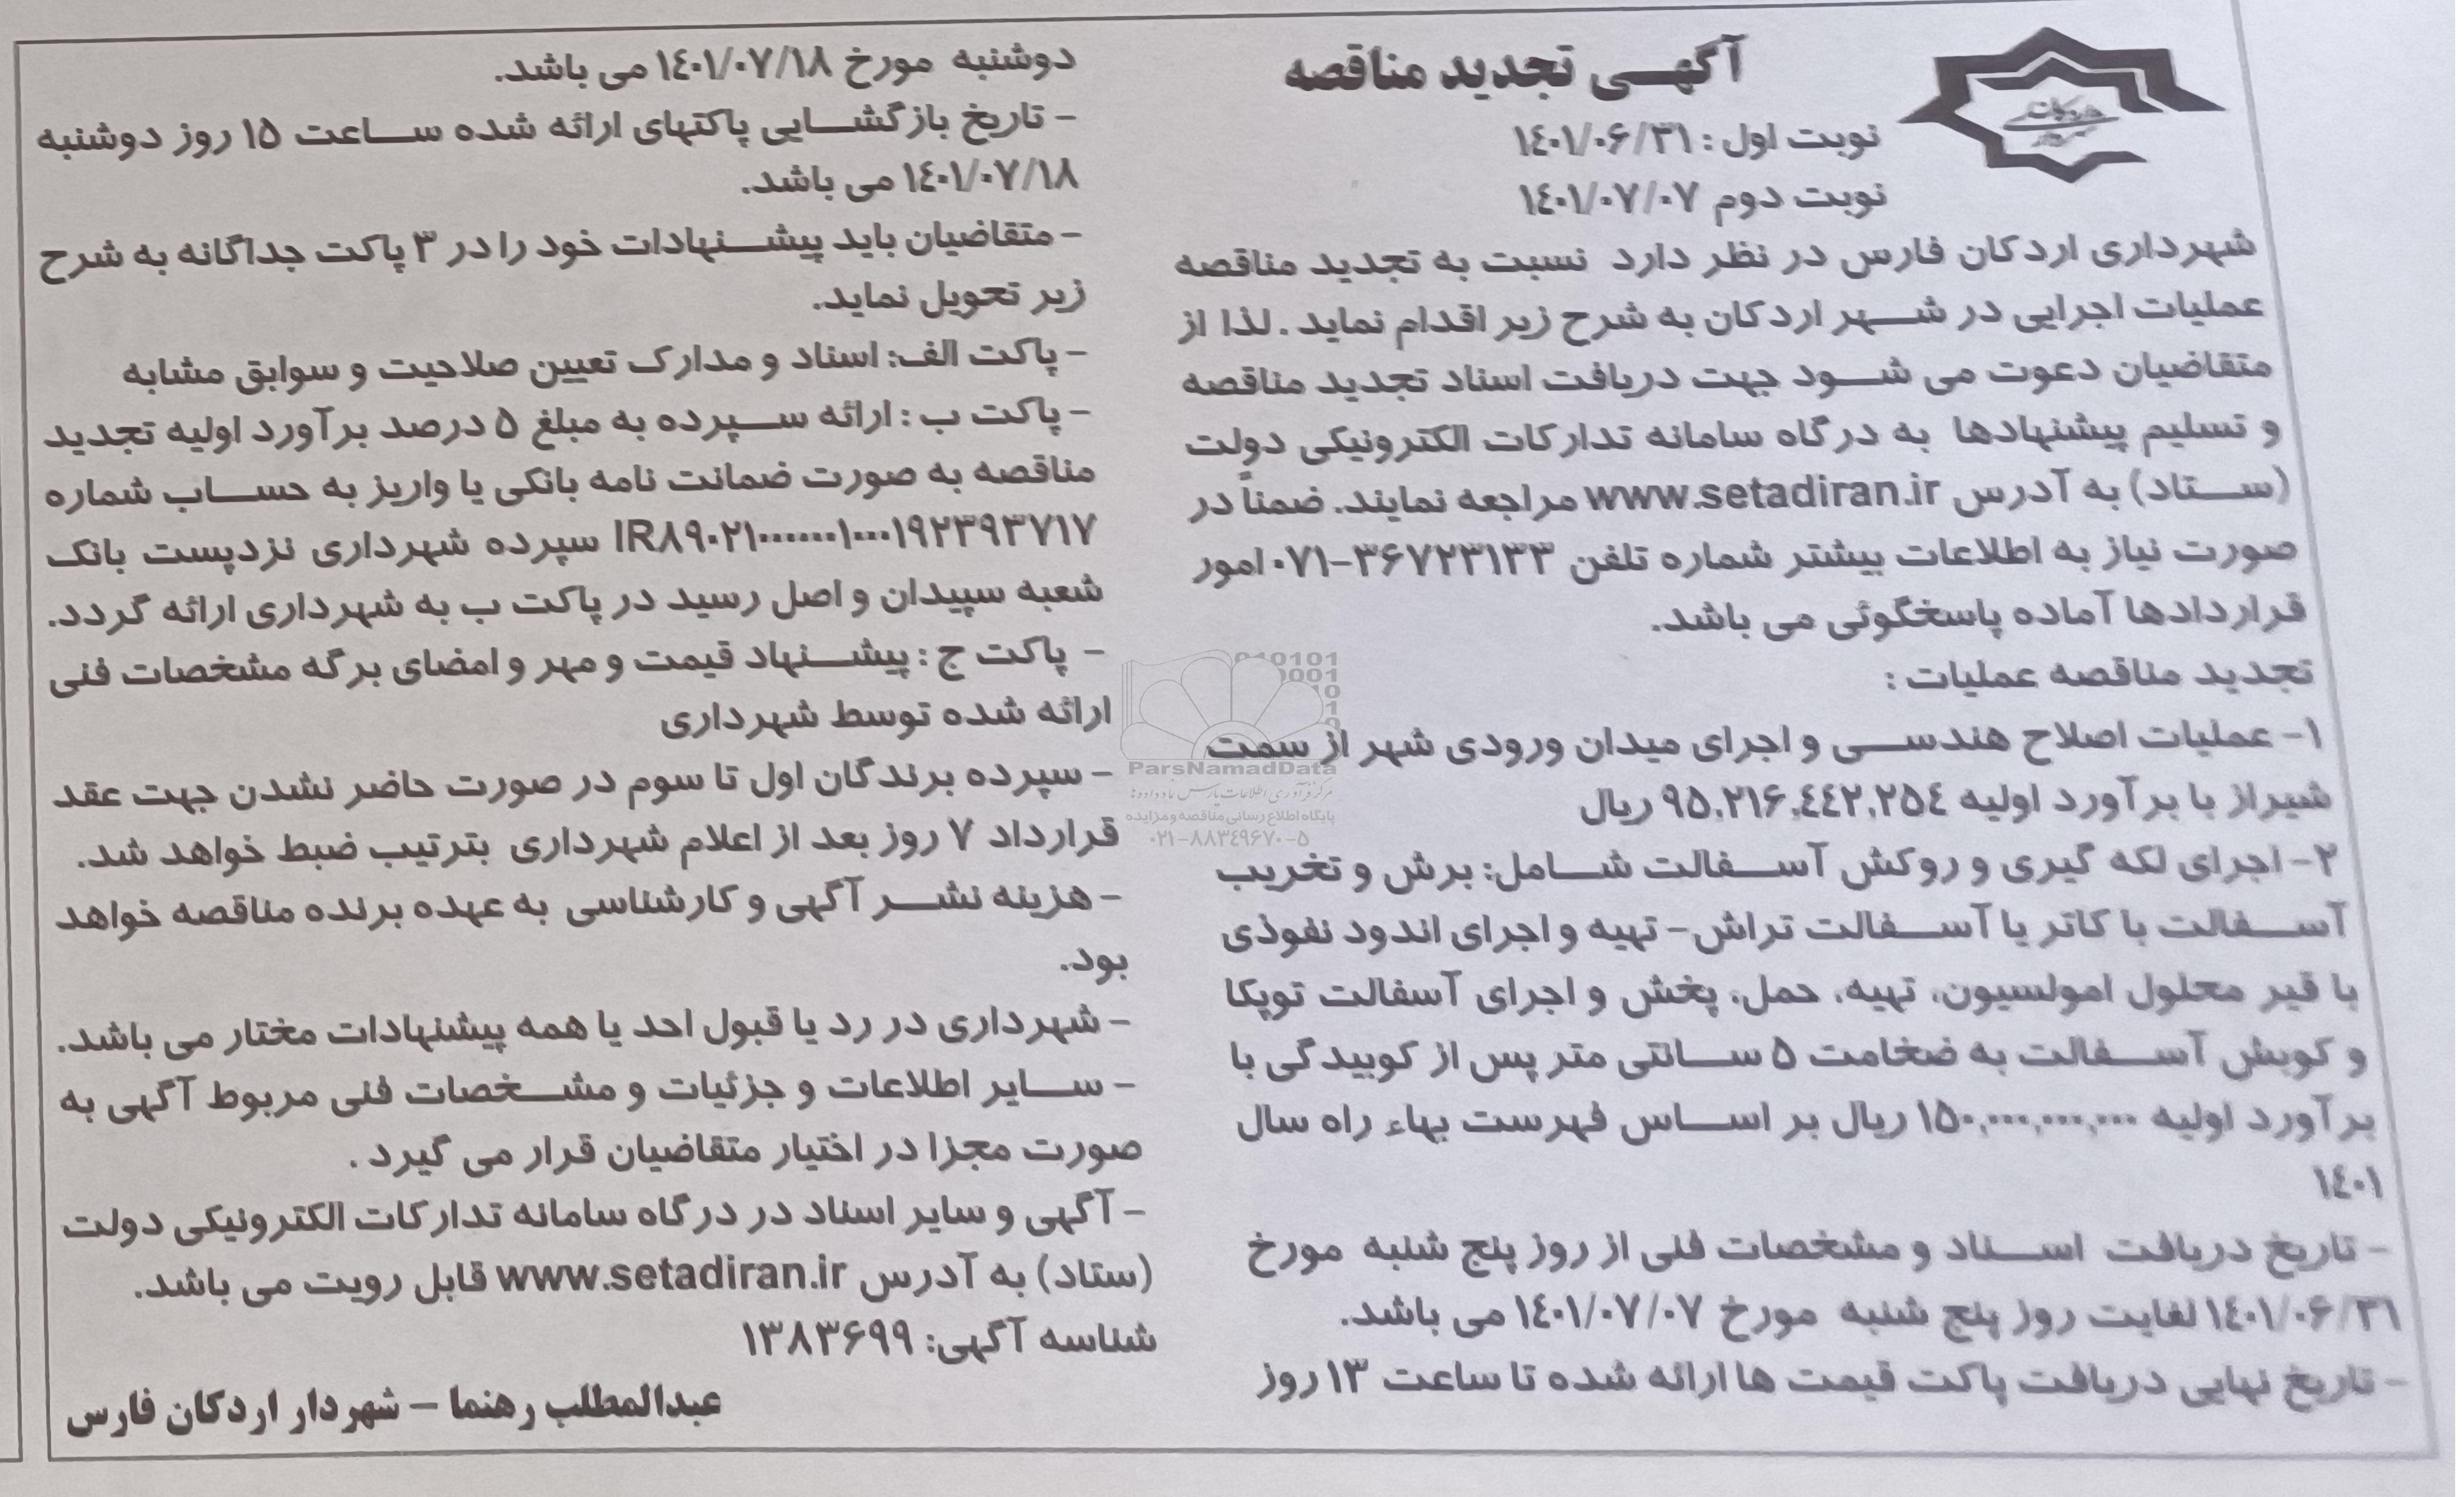 آگهی تجدید مناقصه
نوبت اول : ۱۴۰۱/۰۶/۳۱
نوبت دوم ۱۴۰۱/۰۷/۰۷
شهرداری اردکان فارس در نظر دارد نسبت به تجدید مناقصه
عملیات اجرایی در شهر اردکان به شرح زیر اقدام نماید . لذا از
متقاضیان دعوت می شود جهت دریافت اسناد تجدید مناقصه
و تسلیم پیشنهادها به درگاه سامانه تدارکات الکترونیکی دولت
(ستاد) به آدرس www.setadiran.ir مراجعه نمایند. ضمناً در
صورت نیاز به اطلاعات بیشتر شماره تلفن ۳۶۷۲۳۱۳۳-۰۷۱ امور
قراردادها آماده پاسخگوئی می باشد.
تجدید مناقصه عملیات :
۱- عملیات اصلاح هندسی و اجرای میدان ورودی شهر از سمت
شیراز با برآورد اولیه ۹۵,۲۱۶,۴۴۲,۲۵۴ ریال
۲- اجرای لکه گیری و روکش آسفالت شامل: برش و تخریب
آسفالت با کاتر یا آسفالت تراش- تهیه و اجرای اندود نفوذی
با قیر محلول امولسیون، تهیه، حمل، پخش و اجرای آسفالت توپکا
و کوبش آسفالت به ضخامت ۵ سانتی متر پس از کوبیدگی با
برآورد اولیه ۱۵۰,۰۰۰,۰۰۰,۰۰۰ ریال بر اساس فهرست بهاء راه سال
۱۴۰۱
- تاریخ دریافت اسناد و مشخصات فنی از روز پنج شنبه مورخ
۱۴۰۱/۰۶/۳۱ لغایت روز پنج شنبه مورخ ۱۴۰۱/۰۷/۰۷ می باشد.
- تاریخ نهایی دریافت پاکت قیمت ها ارائه شده تا ساعت ۱۳ روز
دوشنبه مورخ ۱۴۰۱/۰۷/۱۸ می باشد.
- تاریخ بازگشایی پاکتهای ارائه شده ساعت ۱۵ روز دوشنبه
۱۴۰۱/۰۷/۱۸ می باشد.
- متقاضیان باید پیشنهادات خود را در ۳ پاکت جداگانه به شرح
زیر تحویل نماید.
- پاکت الف: اسناد و مدارک تعیین صلاحیت و سوابق مشابه
- پاکت ب : ارائه سپرده به مبلغ ۵ درصد برآورد اولیه تجدید
مناقصه به صورت ضمانت نامه بانکی یا واریز به حساب شماره
IR۸۹۰۲۱۰۰۰۰۰۰۱۰۰۰۱۹۲۳۹۳۷۱۷ سپرده شهرداری نزدپست بانک
شعبه سپیدان و اصل رسید در پاکت ب به شهرداری ارائه گردد.
- پاکت ج : پیشنهاد قیمت و مهر و امضای برگه مشخصات فنی
ارائه شده توسط شهرداری
- سپرده برندگان اول تا سوم در صورت حاضر نشدن جهت عقد
قرارداد ۷ روز بعد از اعلام شهرداری بترتیب ضبط خواهد شد.
- هزینه نشر آگهی و کارشناسی به عهده برنده مناقصه خواهد
بود.
- شهرداری در رد یا قبول احد یا همه پیشنهادات مختار می باشد.
- سایر اطلاعات و جزئیات و مشخصات فنی مربوط آگهی به
صورت مجزا در اختیار متقاضیان قرار می گیرد .
- آگهی و سایر اسناد در درگاه سامانه تدارکات الکترونیکی دولت
(ستاد) به آدرس www.setadiran.ir قابل رویت می باشد.
شناسه آگهی: ۱۳۸۳۶۹۹
عبدالمطلب رهنما – شهردار اردکان فارس
ParsNamadData
پایگاه اطلاع رسانی مناقصه ومزایده
۰۲۱-۸۸۳۴۹۶۷۰-۵